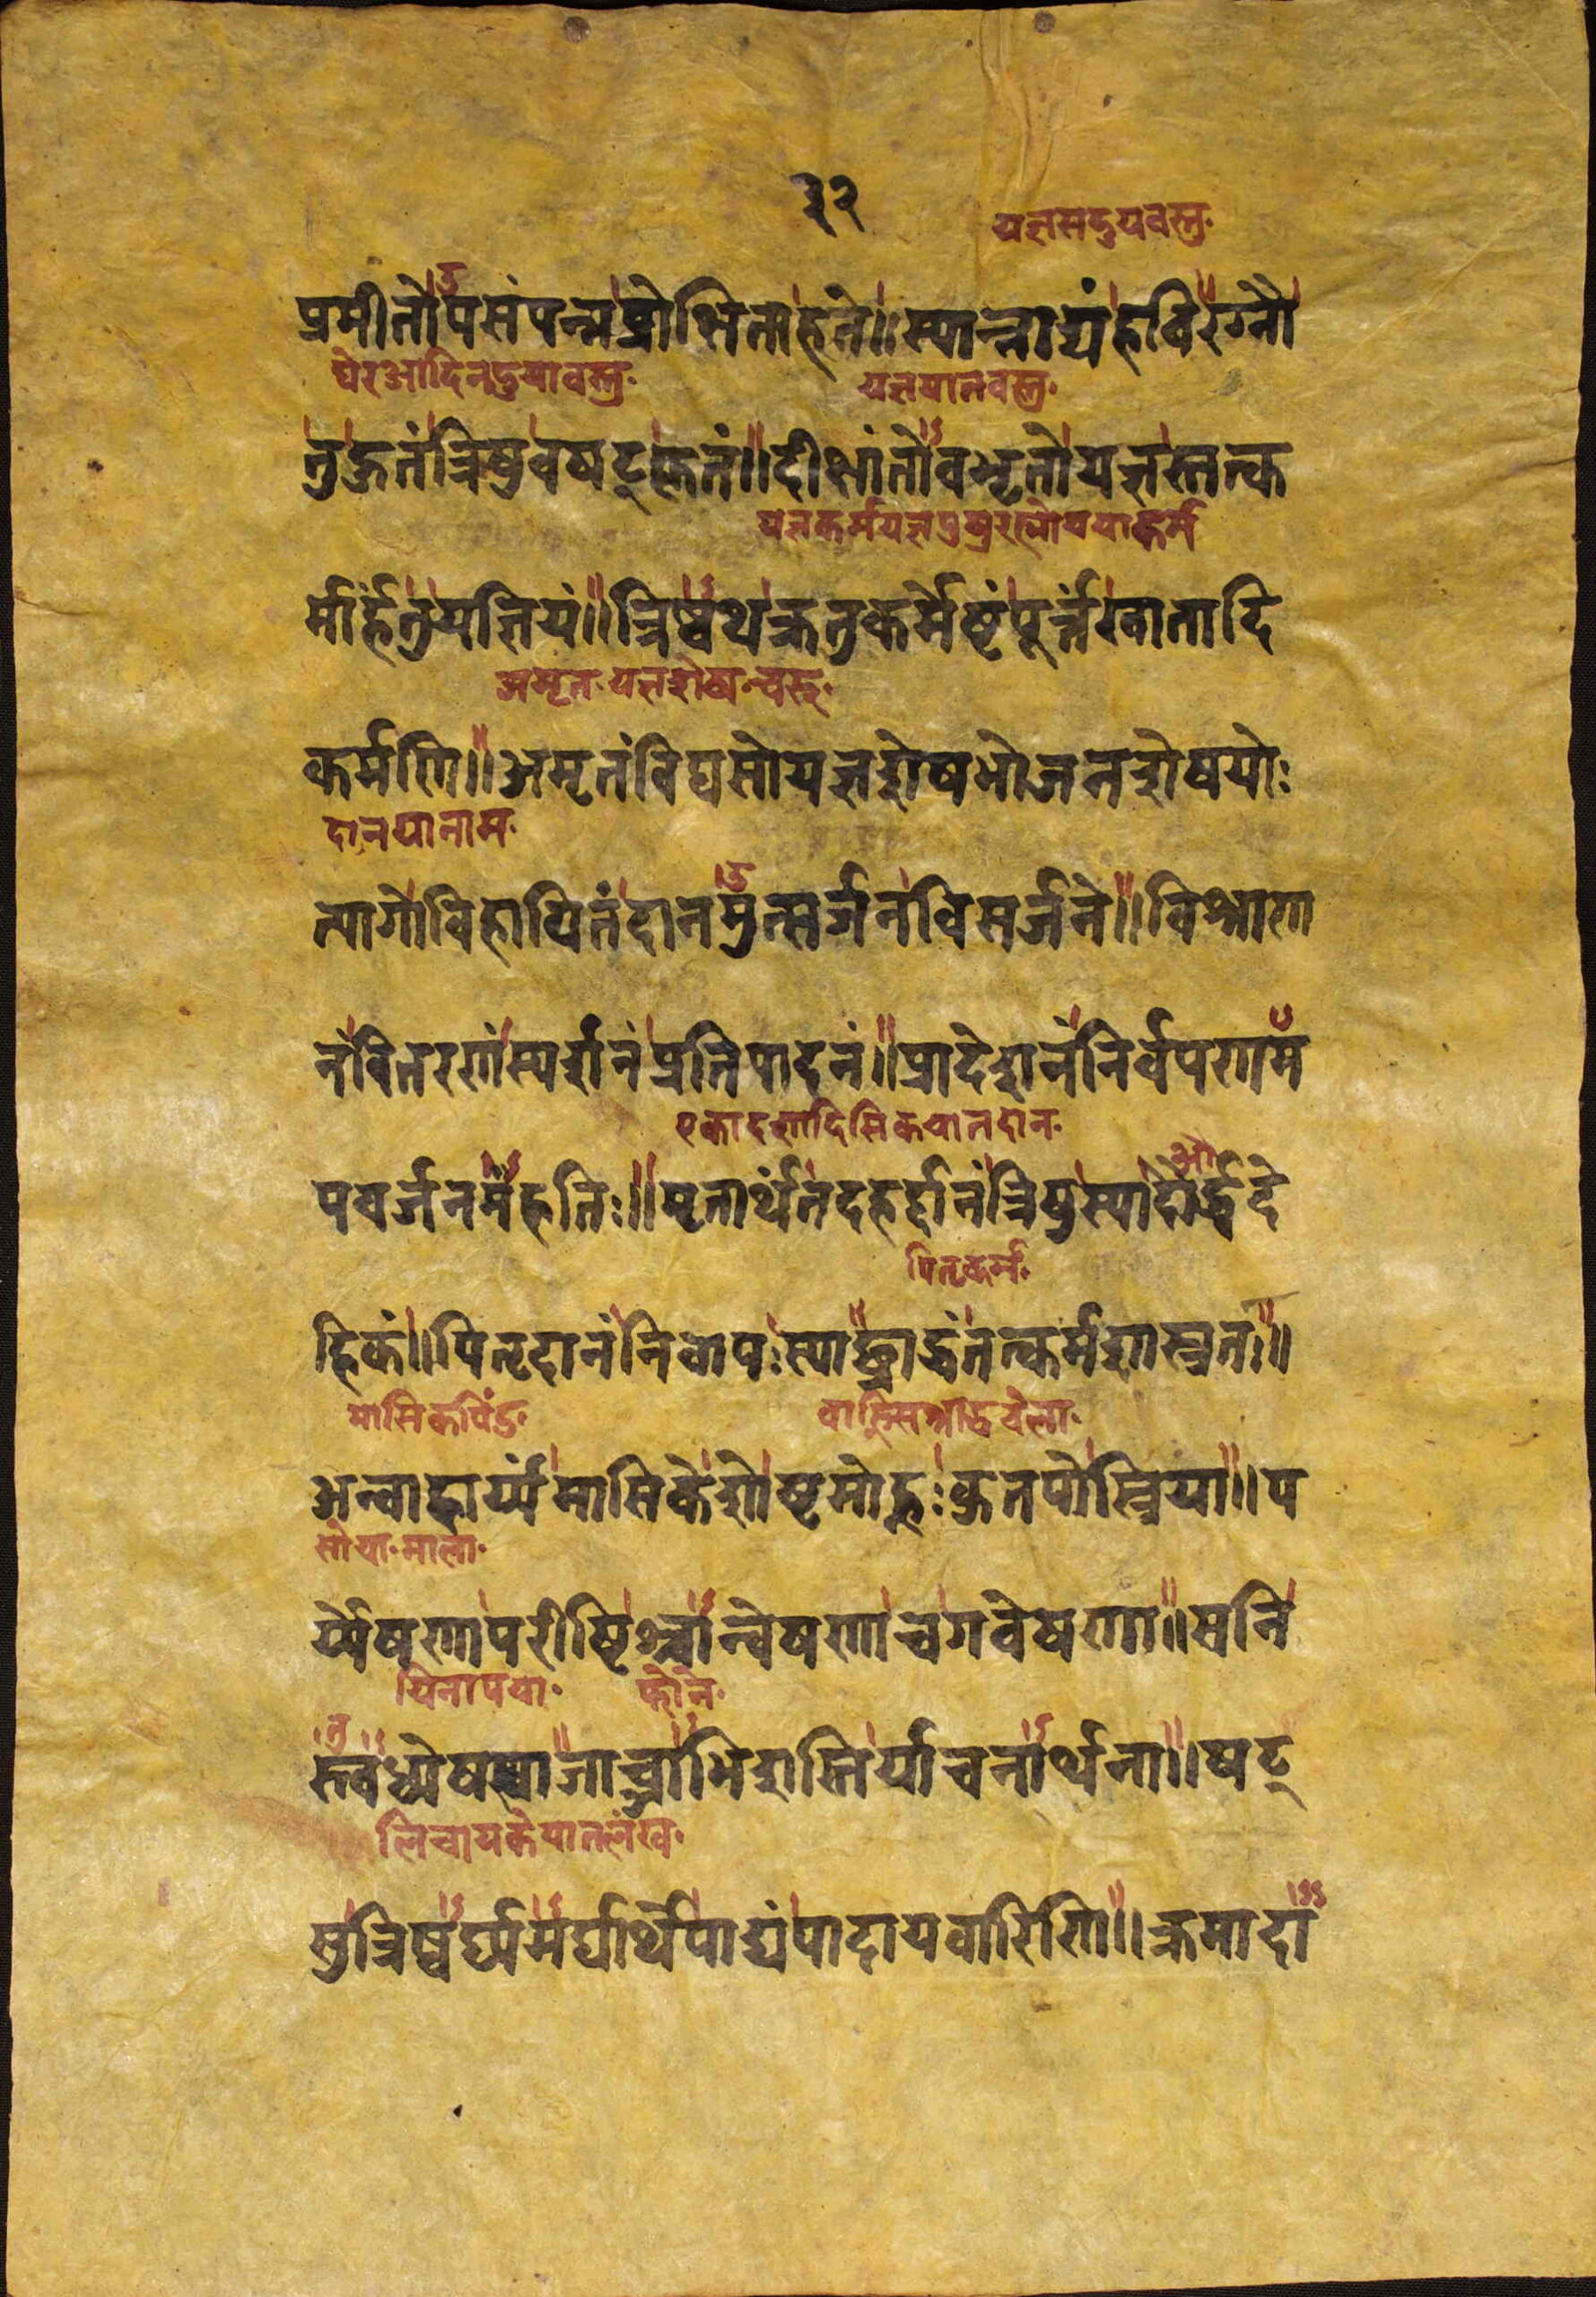 ३२
यज्ञसदुयवस्तु·
प्रमीतोपसंपन्नप्रोक्षिताहते॥स्यान्नाय्यंहविरग्नौ
घेरआदिनदुयावस्तु· यज्ञयातवस्तु·
तुहुतंत्रिषुवषट्कृतं॥दीक्षांतोवभृतोयज्ञस्तत्क
यज्ञकर्म
र्मार्हंतुयज्ञियं॥त्रिष्वथक्रतुकर्मेष्टंपूर्त्तंखातादि
अमृत·यज्ञशेष
कर्मणि॥अमृतंविघसोयज्ञशेषभोजनशेषयोः
दानयानाम·
त्यागोविहायितंदानमुत्सर्गनविसर्जने॥विश्राण
नंवितरणंस्पर्शनंप्रतिपादनं॥प्रादेशनंनिर्वपणम
एकादशादिसिकयातदान·
पवर्जनमंहतिः॥मृतार्थंतदहर्दानंत्रिषुस्यादौर्द्ध्वदे
औ
पितृकर्म·
हिकं॥पितृदानंनिवापःस्याच्छ्राद्धंतत्कर्मशास्त्रतः॥
मासिकपिंड· श्राद्धवेला·
अन्वाहार्य्यंमासिकेशोष्टमोह्नःकुतपोस्त्रिया॥प
सोया·माला·
र्य्येषणापरीष्टिश्चान्वेषणाचगवेषणा॥सनि
यिनापया· फोन·
स्त्वध्येषणायाञ्चाभिशस्तिर्याचनार्थना॥षट्
लिचायकेयातलंख·
सुत्रिष्वर्घ्यमर्घार्थेपाद्यंपादायवारिणि॥क्रमादा